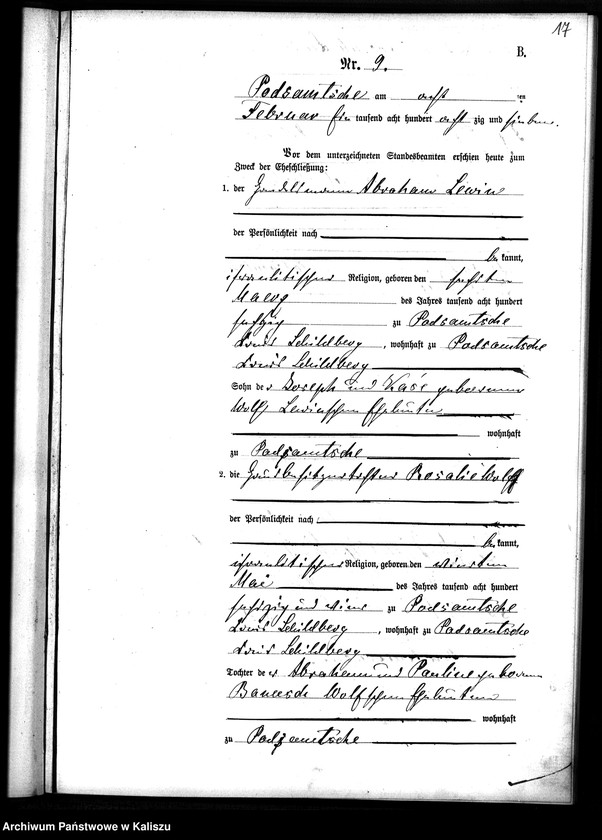 17
B.
Nr. 9.
Podsamtsche am acht ten
Februar Ein tausend acht hundert acht zig und sieben.
Vor dem unterzeichneten Standesbeamten erschien heute zum
Zweck der Eheschließung:
1. der Handelsmann Abraham Lewin
der Persönlichkeit nach
be kannt,
israelitischer Religion, geboren den sechsten
Maerz des Jahres tausend acht hundert
sechzig zu Podsamtsche
Kreis Schildberg, wohnhaft zu Podsamtsche
Kreis Schildberg
Sohn der Joseph und geborenen
Wolf Lewinschen Eheleute
wohnhaft
zu Podsamtsche
2. die Grundbesitzertochter Rosalie Wolff
der Persönlichkeit nach
be kannt,
israelitischer Religion, geboren den vierten
Mai des Jahres tausend acht hundert
sechzig und vier zu Podsamtsche
Kreis Schildberg, wohnhaft zu Podsamtsche
Kreis Schildberg
Tochter der Abraham und Pauline geborenen
Wolfschen Eheleuten
wohnhaft
zu Podzamtsche
Archiwum Państwowe w Kaliszu